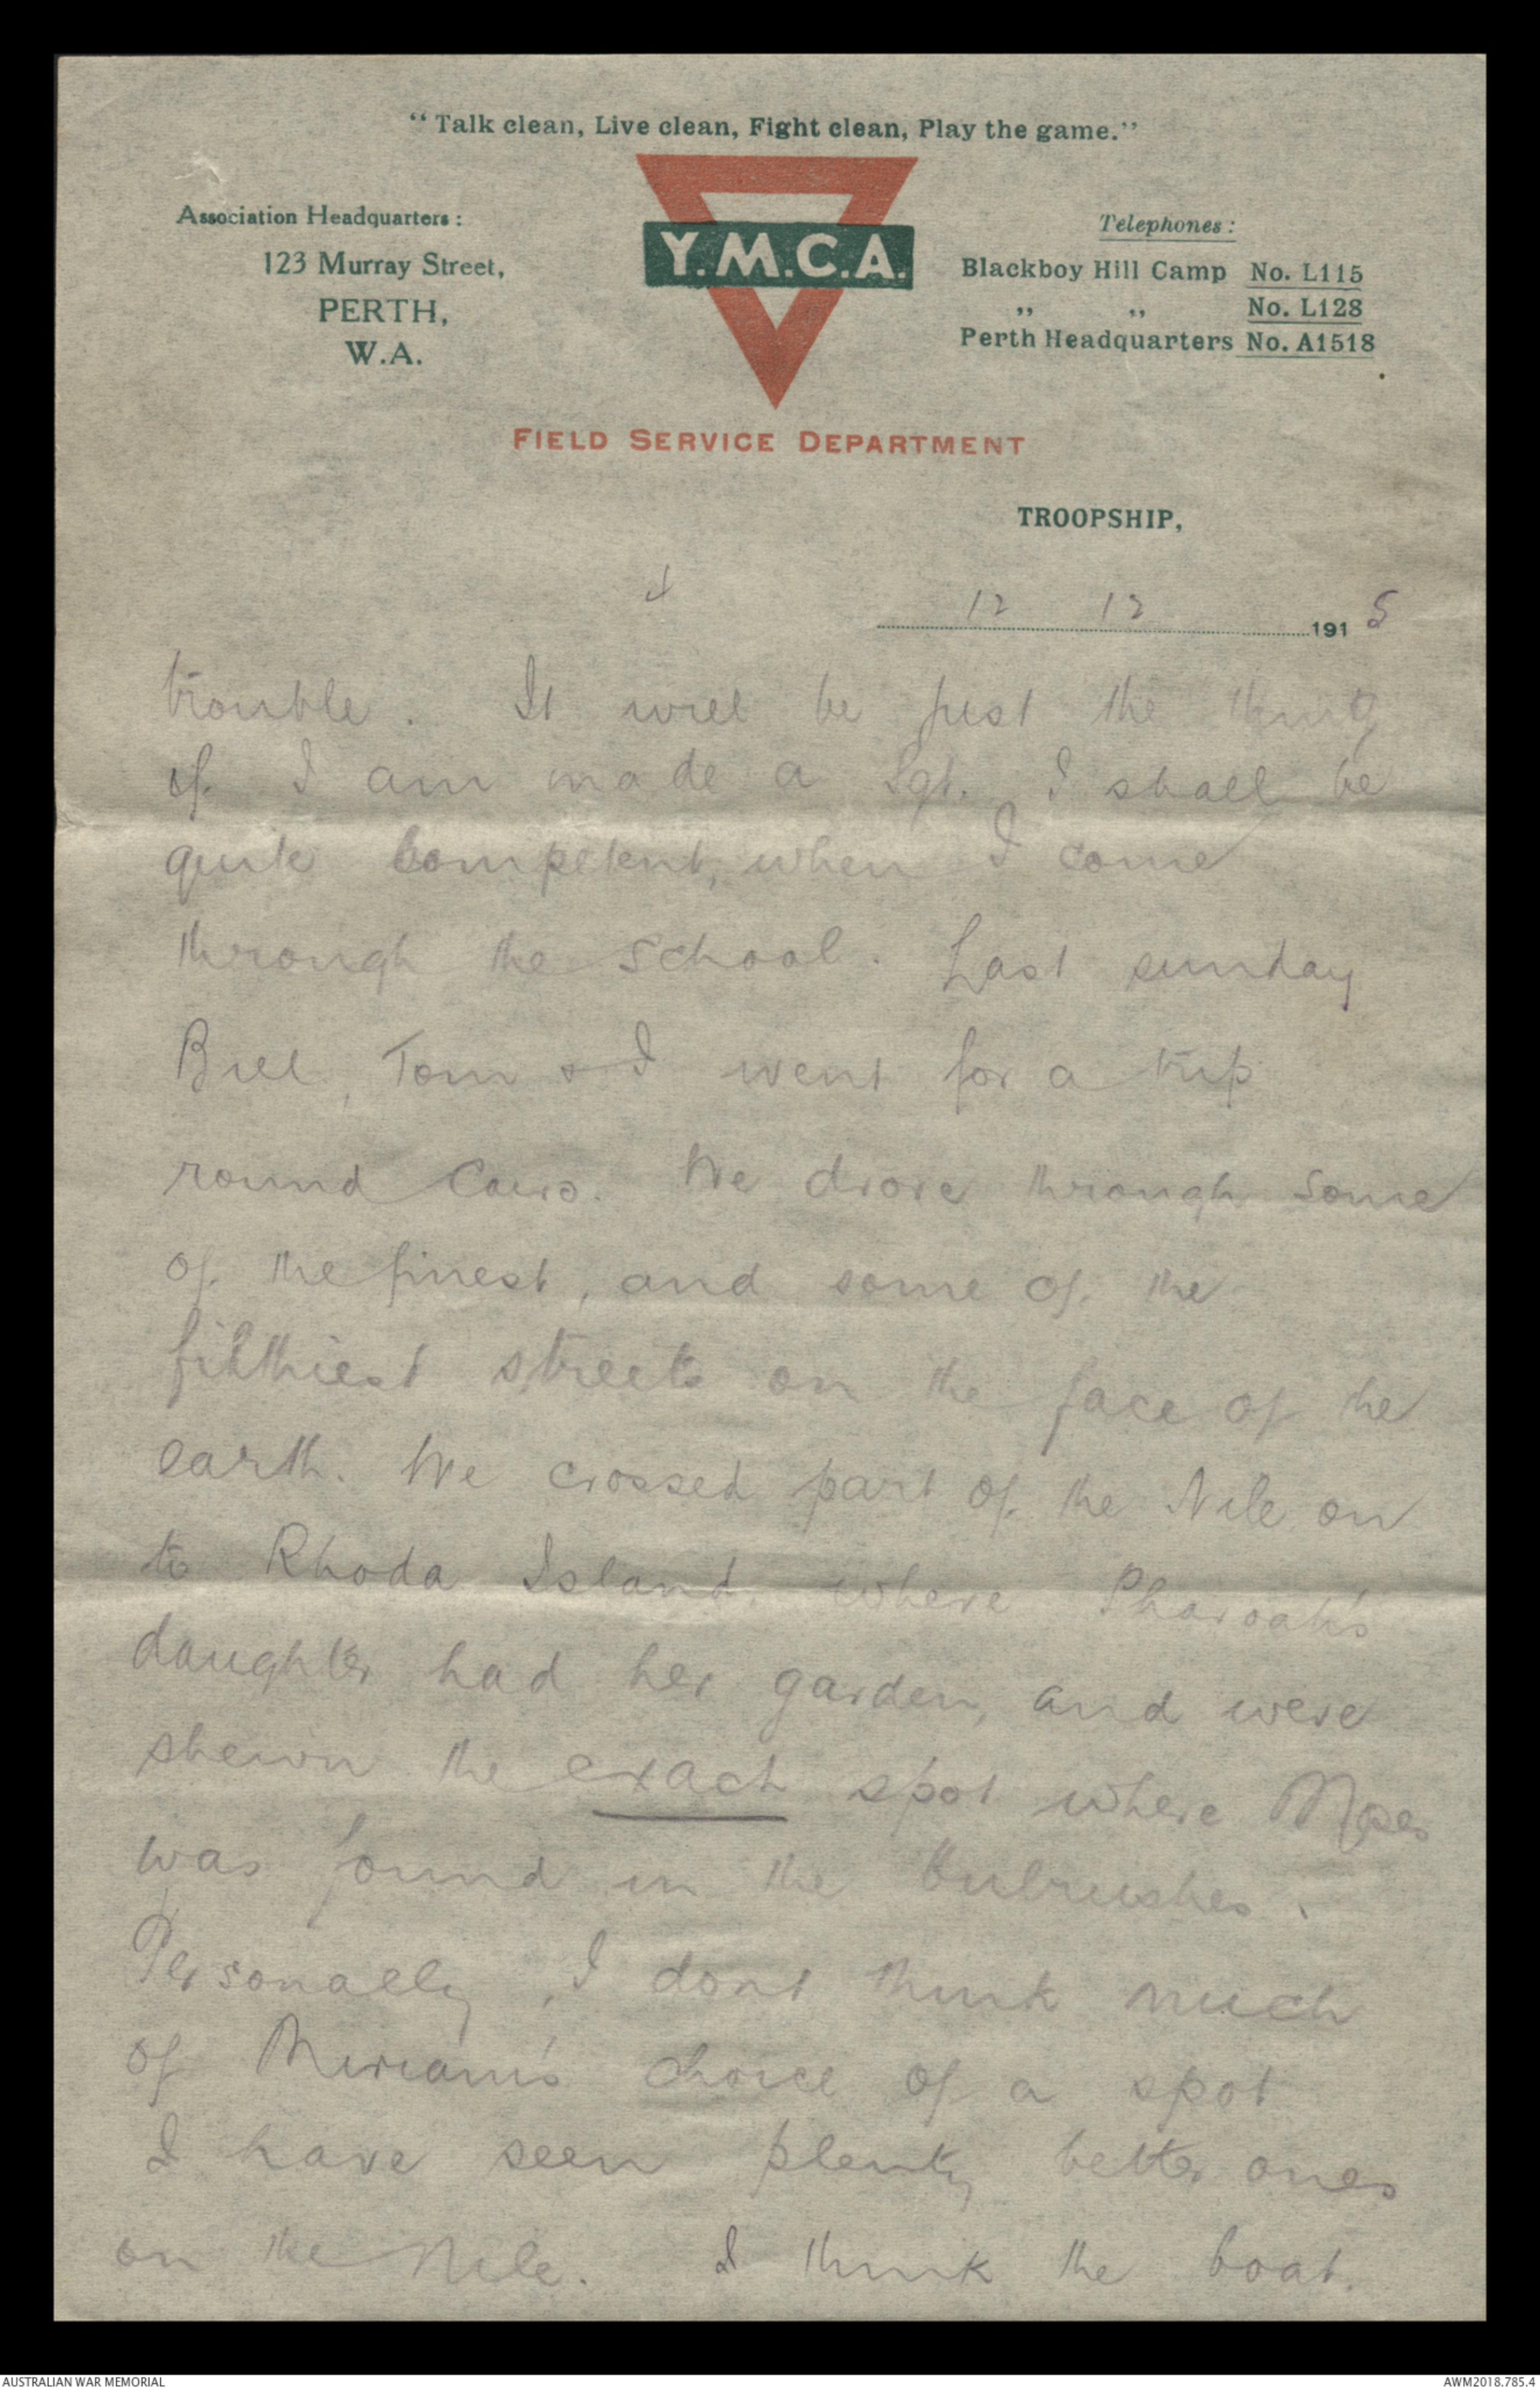 "Talk clean, Live clean, Fight clean, Play the game."
Association Headquarters:
123 Murray Street,
PERTH,
W.A.
Y.M.C.A.
Telephones:
Blackboy Hill Camp No. L115
" " No. L128
Perth Headquarters No. A1518
FIELD SERVICE DEPARTMENT
TROOPSHIP,
12 12 1915
trouble. It will be just the thing
if I am made a Sgt. I shall be
quite competent, when I come
through the school. Last sunday
Bill, Tom & I went for a trip
round Cairo. We drove through some
of the finest, and some of the
filthiest streets on the face of the
earth. We crossed part of the Nile on
to Rhoda Island. where Pharoah's
daughter had her garden, and were
shewn the exact spot where Moses
was found in the bulrushes.
Personally, I dont think much
of Miriam's choice of a spot
I have seen plenty better ones
on the Nile. I think the boat.
AUSTRALIAN WAR MEMORIAL
AWM2018.785.4